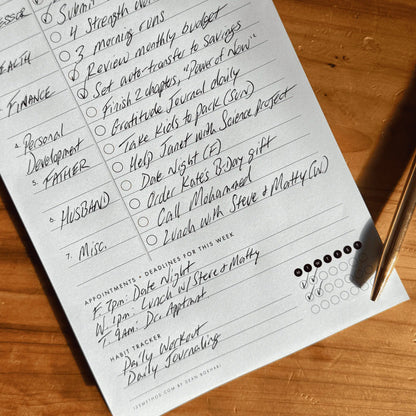 Submit
4 Strength Wor
3 morning runs
Review monthly budget
Set auto-transfer to savings
Finish 2 chapters, "Power of Now"
Gratitude Journal daily
Take kids to park (Sun)
Help Janet with Science Project
Date Night (F)
Order Kates B-Day gift
Call Mohammed
Lunch with Steve & Matty (W)
ESSOR
EALTH
FINANCE
4. Personal
Development
5. FATHER
6. HUSBAND
7. Misc.
APPOINTMENTS + DEADLINES FOR THIS WEEK
F 7pm: Date Night
W 1pm: Lunch w/ Steve & Matty
T 9am: Dr. Apptmnt
HABIT TRACKER
M T W T F S S
Daily Workout
Daily Journaling